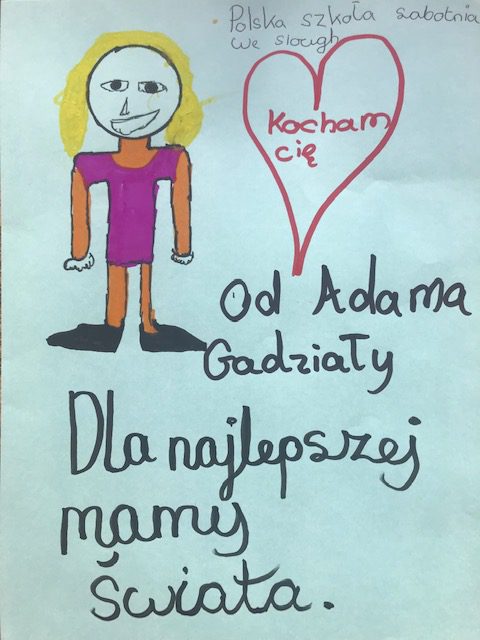 Polska szkoła sabotnia
we slough
Kocham
cię
Od Adama
Gadziały
Dla najlepszej
mamy
świata.